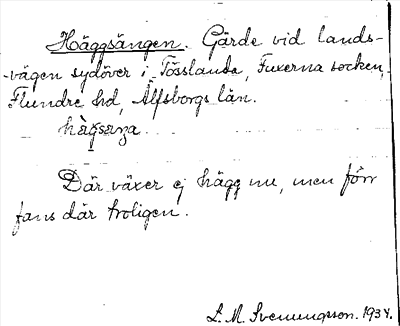 Häggsängen. Gärde vid lands-
-vägen sydöver i Tösslanda, Fuxerna socken,
Flundre hd, Älfsborgs län.
hägsæŋa
Där växer ej hägg nu, men förr
fans där troligen.
L. M. Svenungsson. 1934.